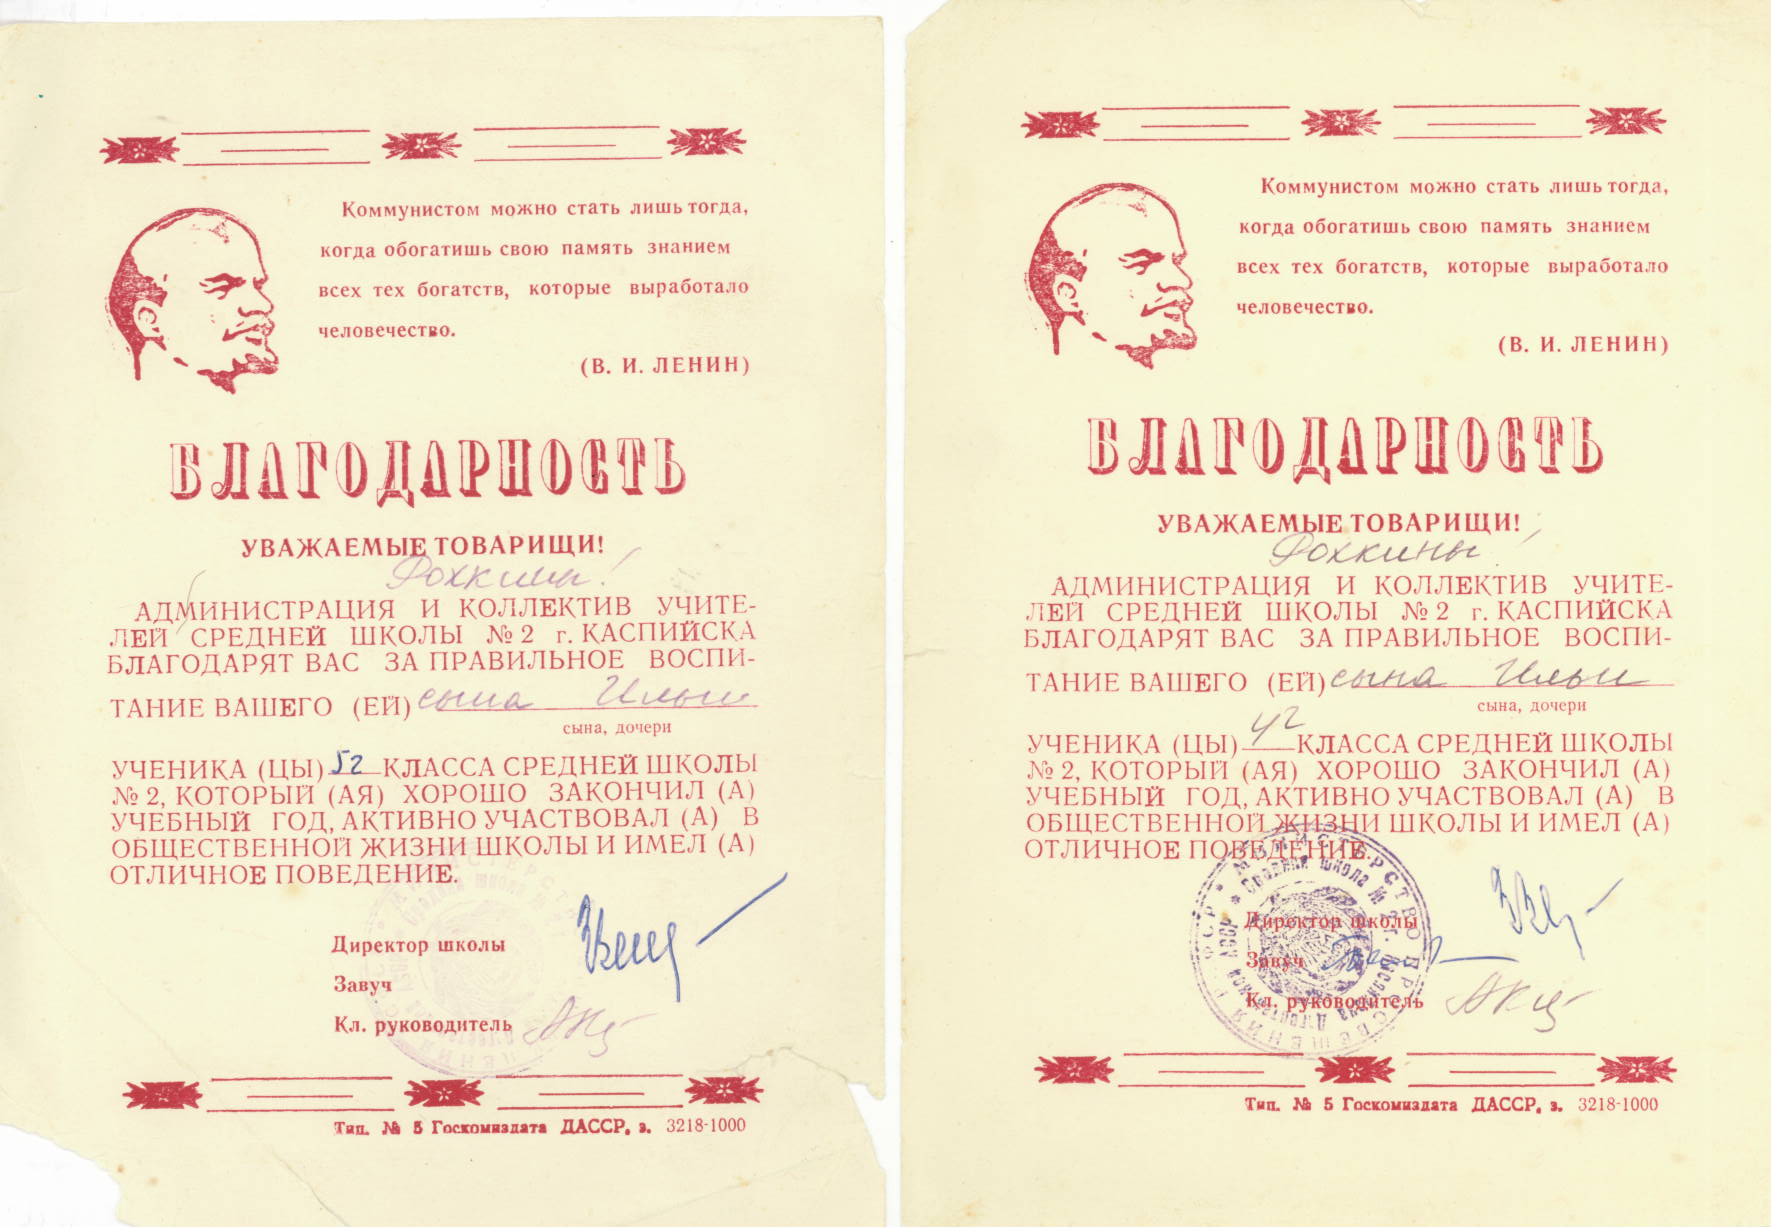 Коммунистом можно стать лишь тогда,
когда обогатишь свою память знанием
всех тех богатств, которые выработало
человечество.
(В. И. ЛЕНИН)
БЛАГОДАРНОСТЬ
УВАЖАЕМЫЕ ТОВАРИЩИ!
АДМИНИСТРАЦИЯ И КОЛЛЕКТИВ УЧИТЕ-
ЛЕЙ СРЕДНЕЙ ШКОЛЫ № 2 г. КАСПИЙСКА
БЛАГОДАРЯТ ВАС ЗА ПРАВИЛЬНОЕ ВОСПИ-
ТАНИЕ ВАШЕГО (ЕЙ) сына Ильи
сына, дочери
УЧЕНИКА (ЦЫ) 5г КЛАССА СРЕДНЕЙ ШКОЛЫ
№ 2, КОТОРЫЙ (АЯ) ХОРОШО ЗАКОНЧИЛ (А)
УЧЕБНЫЙ ГОД, АКТИВНО УЧАСТВОВАЛ (А) В
ОБЩЕСТВЕННОЙ ЖИЗНИ ШКОЛЫ И ИМЕЛ (А)
ОТЛИЧНОЕ ПОВЕДЕНИЕ.
Директор школы
Завуч
Кл. руководитель
Тип. № 5 Госкомиздата ДАССР, з. 3218-1000
Коммунистом можно стать лишь тогда,
когда обогатишь свою память знанием
всех тех богатств, которые выработало
человечество.
(В. И. ЛЕНИН)
БЛАГОДАРНОСТЬ
УВАЖАЕМЫЕ ТОВАРИЩИ!
АДМИНИСТРАЦИЯ И КОЛЛЕКТИВ УЧИТЕ-
ЛЕЙ СРЕДНЕЙ ШКОЛЫ № 2 г. КАСПИЙСКА
БЛАГОДАРЯТ ВАС ЗА ПРАВИЛЬНОЕ ВОСПИ-
ТАНИЕ ВАШЕГО (ЕЙ) сына Ильи
сына, дочери
УЧЕНИКА (ЦЫ) 4г КЛАССА СРЕДНЕЙ ШКОЛЫ
№ 2, КОТОРЫЙ (АЯ) ХОРОШО ЗАКОНЧИЛ (А)
УЧЕБНЫЙ ГОД, АКТИВНО УЧАСТВОВАЛ (А) В
ОБЩЕСТВЕННОЙ ЖИЗНИ ШКОЛЫ И ИМЕЛ (А)
ОТЛИЧНОЕ ПОВЕДЕНИЕ.
Директор школы
Завуч
Кл. руководитель
Тип. № 5 Госкомиздата ДАССР, з. 3218-1000